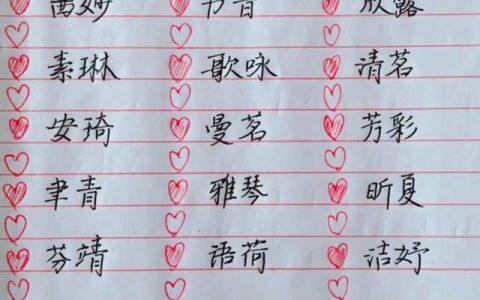 素琳 歌咏 清茗
安琦 曼茗 芳彩
聿青 雅琴 昕夏
芬靖 语荷 洁妤